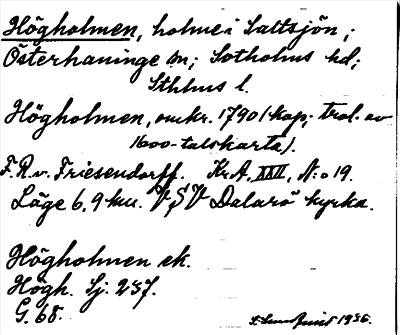 Högholmen, holme i Saltsjön,
Österhaninge sn; Sotholms hd;
Sthlms l.
Högholmen, omkr. 1790 (kop; trol. av
1600-talskarta).
F. R. v. Friesendorff. Kr A, XXII, N:o 19.
Läge 6,9 km. V,SV Dalarö kyrka.
Högholmen ek.
Högh. Sj. 237.
G. 68.
1936.